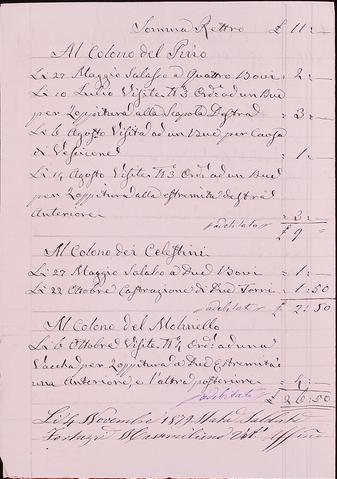 Somma Retro £ 11:-
Al Colono del Pino
Li 27 Maggio Salasso a Quattro Bovi = 2:-
Li 10 Luglio Visite N° 3 Ord.e ad un Bue
per Zoppitura alla Scapola Destra = 3:-
Li 6 Agosto Visita ad un Bue per Causa
di Vescicone = 1:-
Li 14 Agosto Visite N° 3 Ord.e ad un Bue
per Zoppitura alla estremità destra
Anteriore = 3:-
£ 9
Al Colono dei Celestini
Li 27 Maggio Salasso a Due Bovi = 1:-
Li 22 Ottobre Castrazione di Due Torri = 1:50
£ 2:50
Al Colono del Molinello
Li 6 Ottobre Visite N° 4 Ord.e ad una
Vacca per Zoppitura a Due Estremità
una Anteriore e l'altra posteriore = 4:-
£ 26:50
Li 4 Novembre 1879 Saldato
Massimiliano